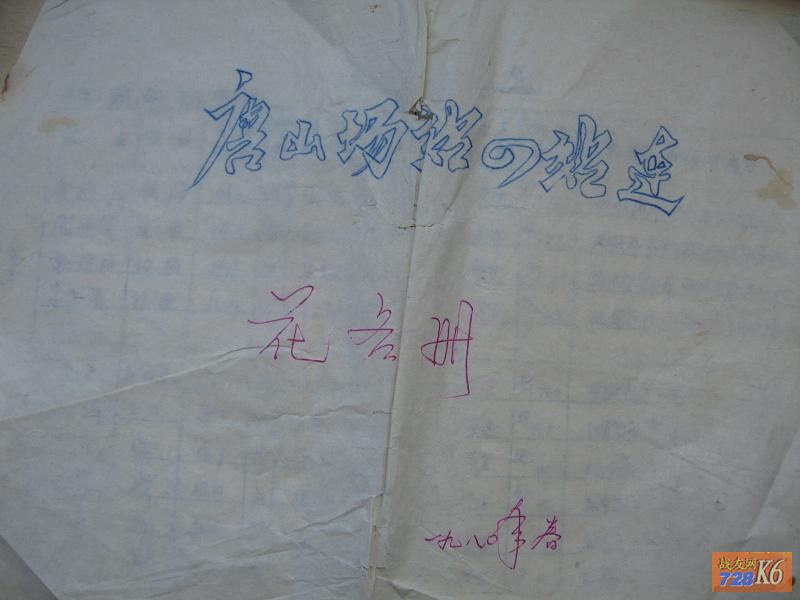 唐山场站の站连
花名册
一九八〇年春
战友网
728 K6